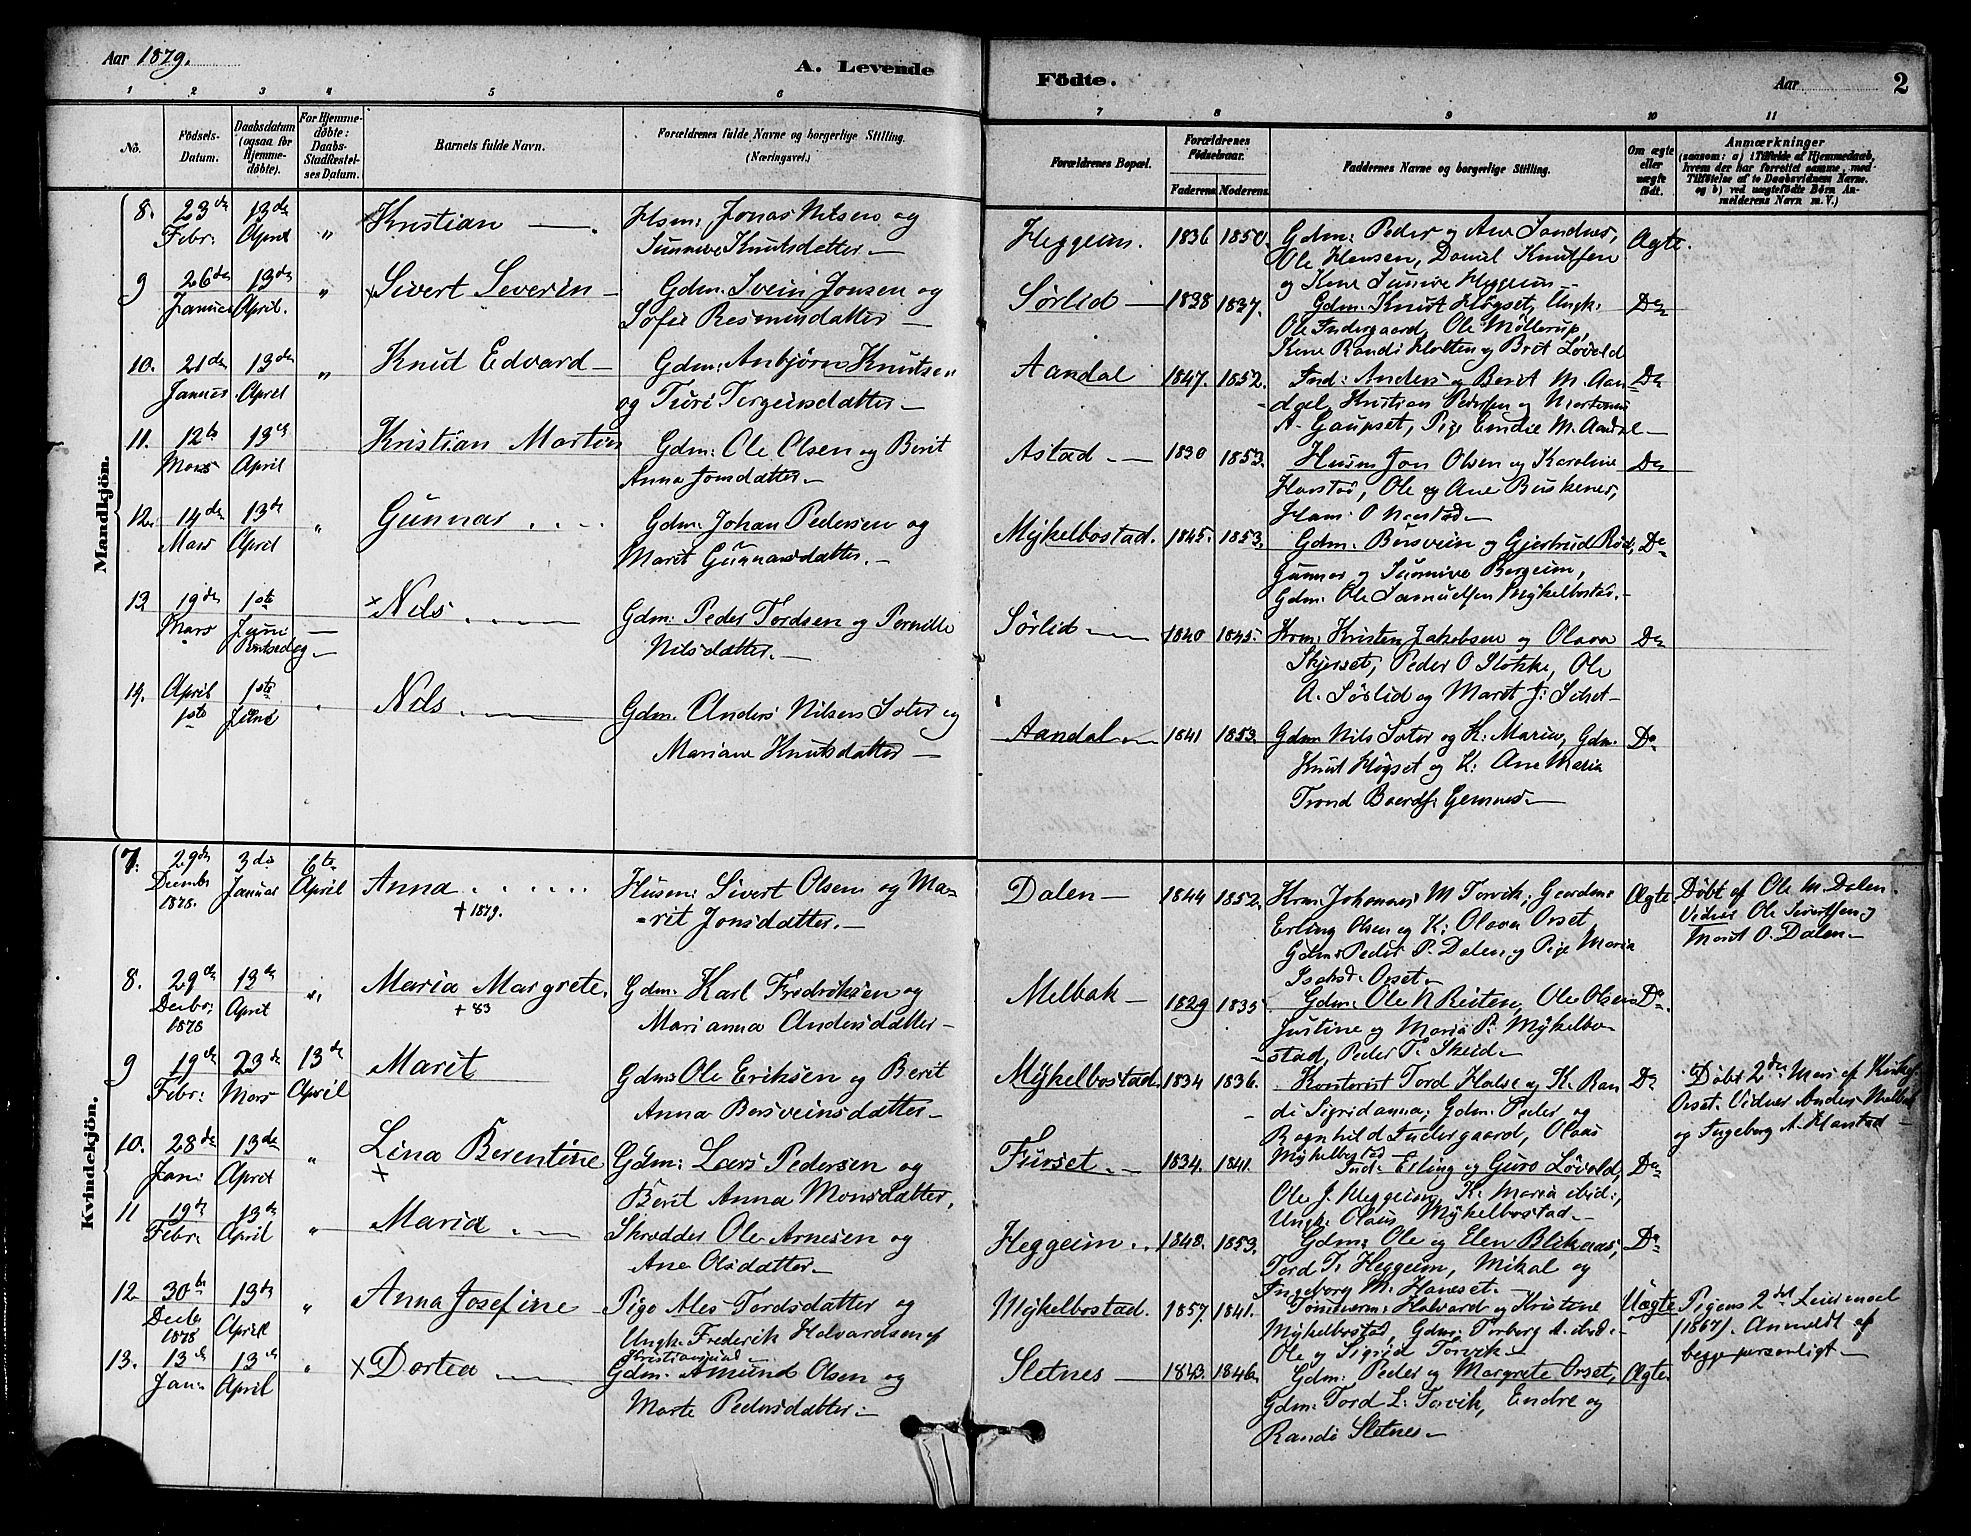 Aar 1879.
A. Levende
Födte.
Aar
2
1 2 3 4 5 6 7 8 9 10 11
No.
Födsels-
Datum.
Daabsdatum
(ogsaa for
Hjemme-
döbte).
For Hjemme-
døbte:
Daabs-
Stadfæstel-
ses Datum.
Barnets fulde Navn.
Forældrenes fulde Navne og borgerlige Stilling.
(Næringsvei.)
Forældrenes Bopæl.
Forældrenes
Födselsaar.
Faderens. Moderens.
Faddernes Navne og borgerlige Stilling.
Om ægte
eller
uægte
födt.
Anmærkninger
(saasom: a) i Tilfælde af Hjemmedaab,
hvem der har forrettet samme, med
Tilföielse af to Daabsvidners Navne.
og b) ved uægtefödte Börn An-
melderens Navn m. V.)
Mandkjön.
8. 23de Febr: 13de April " Kristian —. Hsm: Jonas Nilsen og
Sunnive Knutsdatter —
Heggeim. 1836 1850. Gdm: Peder og Ane Sandnes, Ægte.
Ole Hansen, Daniel Knutsen
og Kone Sunive Heggeim —
9 26de Januar 13de April. " × Sivert Severin — Gdm. Svein Jonsen og
Sofie Rasmusdatter —
Sørlid — 1838 1837. Gdm: Knut Høgset, Ungk. Do
Ole Indergaard, Ole Møllerup,
Kone Randi Holten og Brit Løvold
10. 21de Januar 13de April " Knut Edvard — Gdm: Anbjörn Knutsen
og Turi Torgeirsdatter —
Aandal 1847. 1852. Ind: Anders og Berit M. Aan- Do
dal, Kristian Pedersen og
A. Gaupset, Pige M. Aandal —
11. 12te Mars 13de April Kristian Martin Gdm: Ole Olsen og Berit
Anna Jonsdatter. —
Astad — 1830 1853. Husm Jon Olsen og Karoline Do
Harstad, Ole og Ane Buskenes,
Hans O Harstad —
12. 14de Mars 13de April " Gunnar Gdm. Johan Pedersen og
Marit Gunnarsdatter. —
Mykelbostad. 1845. 1853. Gdm. Bersvein og Gjertrud Röd, Do
Gunnar og Sunnive Bergeim,
Gdm. Ole Samuelsen Mykelbostad. —
13 19de Mars 1ste Juni Pintsedag — × Nils. — Gdm: Peder Tordsen og Pernille
Nilsdatter. —
Sørlid — 1840 1845. Krm: Kristen Jakobsen og Olava Do
Skjerset, Peder O Stokke, Ole
A. Sørlid og Maret J: Setset —
14. April 1ste 1ste Juni " Nils. — Gdm. Anders Nilsen Soter og
Mariane Knutsdatter —
Aandal — 1841 1853. Gdm Nils Soter og K: Maria, Gdm. Do
Knut Høgset og K: Ane Maria
Trond Baardf: Gemnes —
Kvindekjön.
7. 29de Decembr 1878. 3die Januar 6te April Anna
† 1879.
Husm: Sivert Olsen og Ma-
rit Jonsdatter. —
Dalen — 1844 1852. Krm: Johannes M Torvik, Gaardm. Ægte
Erling Olsen og K: Olava Orset
Gdm: Peder P. Dalen og Pige Maria
Isaksd: Orset —
Döbt af Ole M. Dalen.
Vidner Ole Sivertsen og
Marit O. Dalen —
8. 29de Decbr: 1878 13de April " Maria Margrete.
+ 83
Gdm: Karl Fredriksen og
Marianna Andersdatter —
Melbak — 1829 1835 Gdm: Ole N Reiten, Ole Olsen Do.
Justine og Maria P. Mykelbo-
stad, Peder T. Skeid —
9 19de Febr: 23de Mars 13de April Marit Gdm: Ole Eriksen og Berit
Anna Bersveinsdatter —
Mykelbostad. 1834 1836. Kontorist Tord Halse og K. Ran- Do
di Sigridanna; Gdm: Peder og
Ragnhild Indergaard, Olaus
Mykelbostad —
Döbt 2den Mars af Kirkes.
Orset. Vidner Anders Melbak
og Ingeborg A. Harstad —
10. 28de Jan: 13de April " Lina Berentine
×
Gdm: Lars Pedersen og
Berit Anna Monsdatter,
Furset. — 1834. 1841. Ind: Erling og Guro Løvold, Do
Ole J. Heggeim, K. Maria ibid:,
Ungk: Olaus Mykelbostad —
11 19de Febr: 13de April " Maria — Skrædder Ole Arnesen og
Ane Olsdatter —
Heggeim 1848. 1853. Gdm: Ole og Elen Blikaas, Do
Tord T. Heggeim, Mikal og
Ingeborg M. Haneset. —
12. 30te Decbr 1878 13de April " Anna Josefine — Pige Ales Tordsdatter og
Ungk: Frederik Halvardsen af
Kristiansund
Mykelbostad. 1857. 1841. Tömmerm: Halvard og Kristine Uægte
Mykelbostad, Gdm: Torberg A. ibid:
Ole og Sigrid Torvik —
Pigens 2det Leiermaal
(1867). Anmeldt af
begge personligt —
13. 13de Jan: 13de April " × Dortea — Gdm. Amund Olsen og
Marte Pedersdatter —
Sletnes — 1843. 1846. Gdm: Peder og Margrete Orset, Ægte.
Gdm: Tord L: Torvik, Endre og
Randi Sletnes —